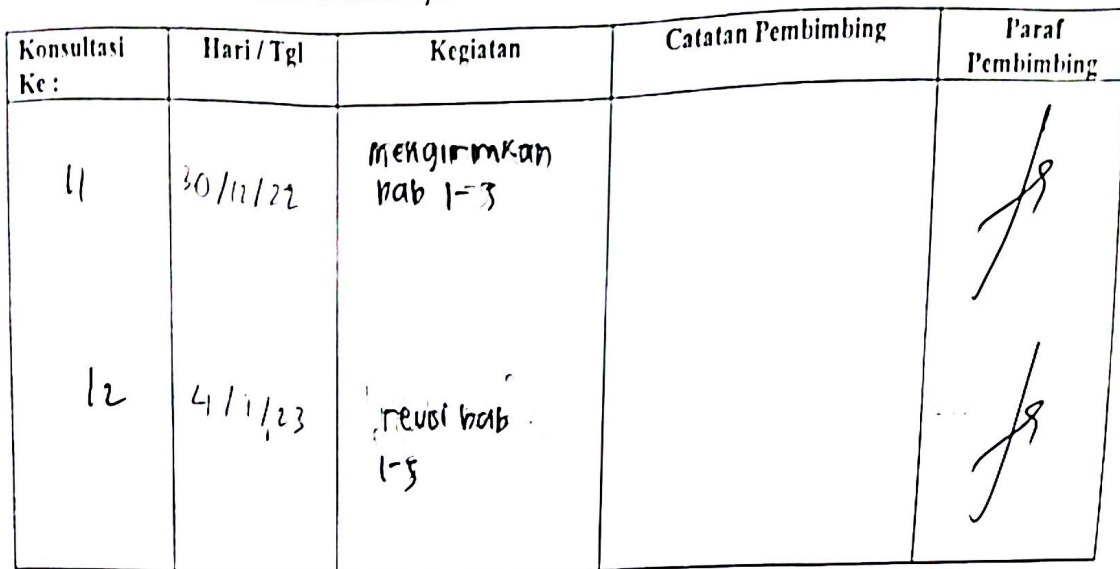 Konsultasi Ke :
Hari / Tgl
Kegiatan
Catatan Pembimbing
Paraf Pembimbing
11
30/12/22
mengirmkan
bab 1-3
12
4/1/23
revisi bab
1-5